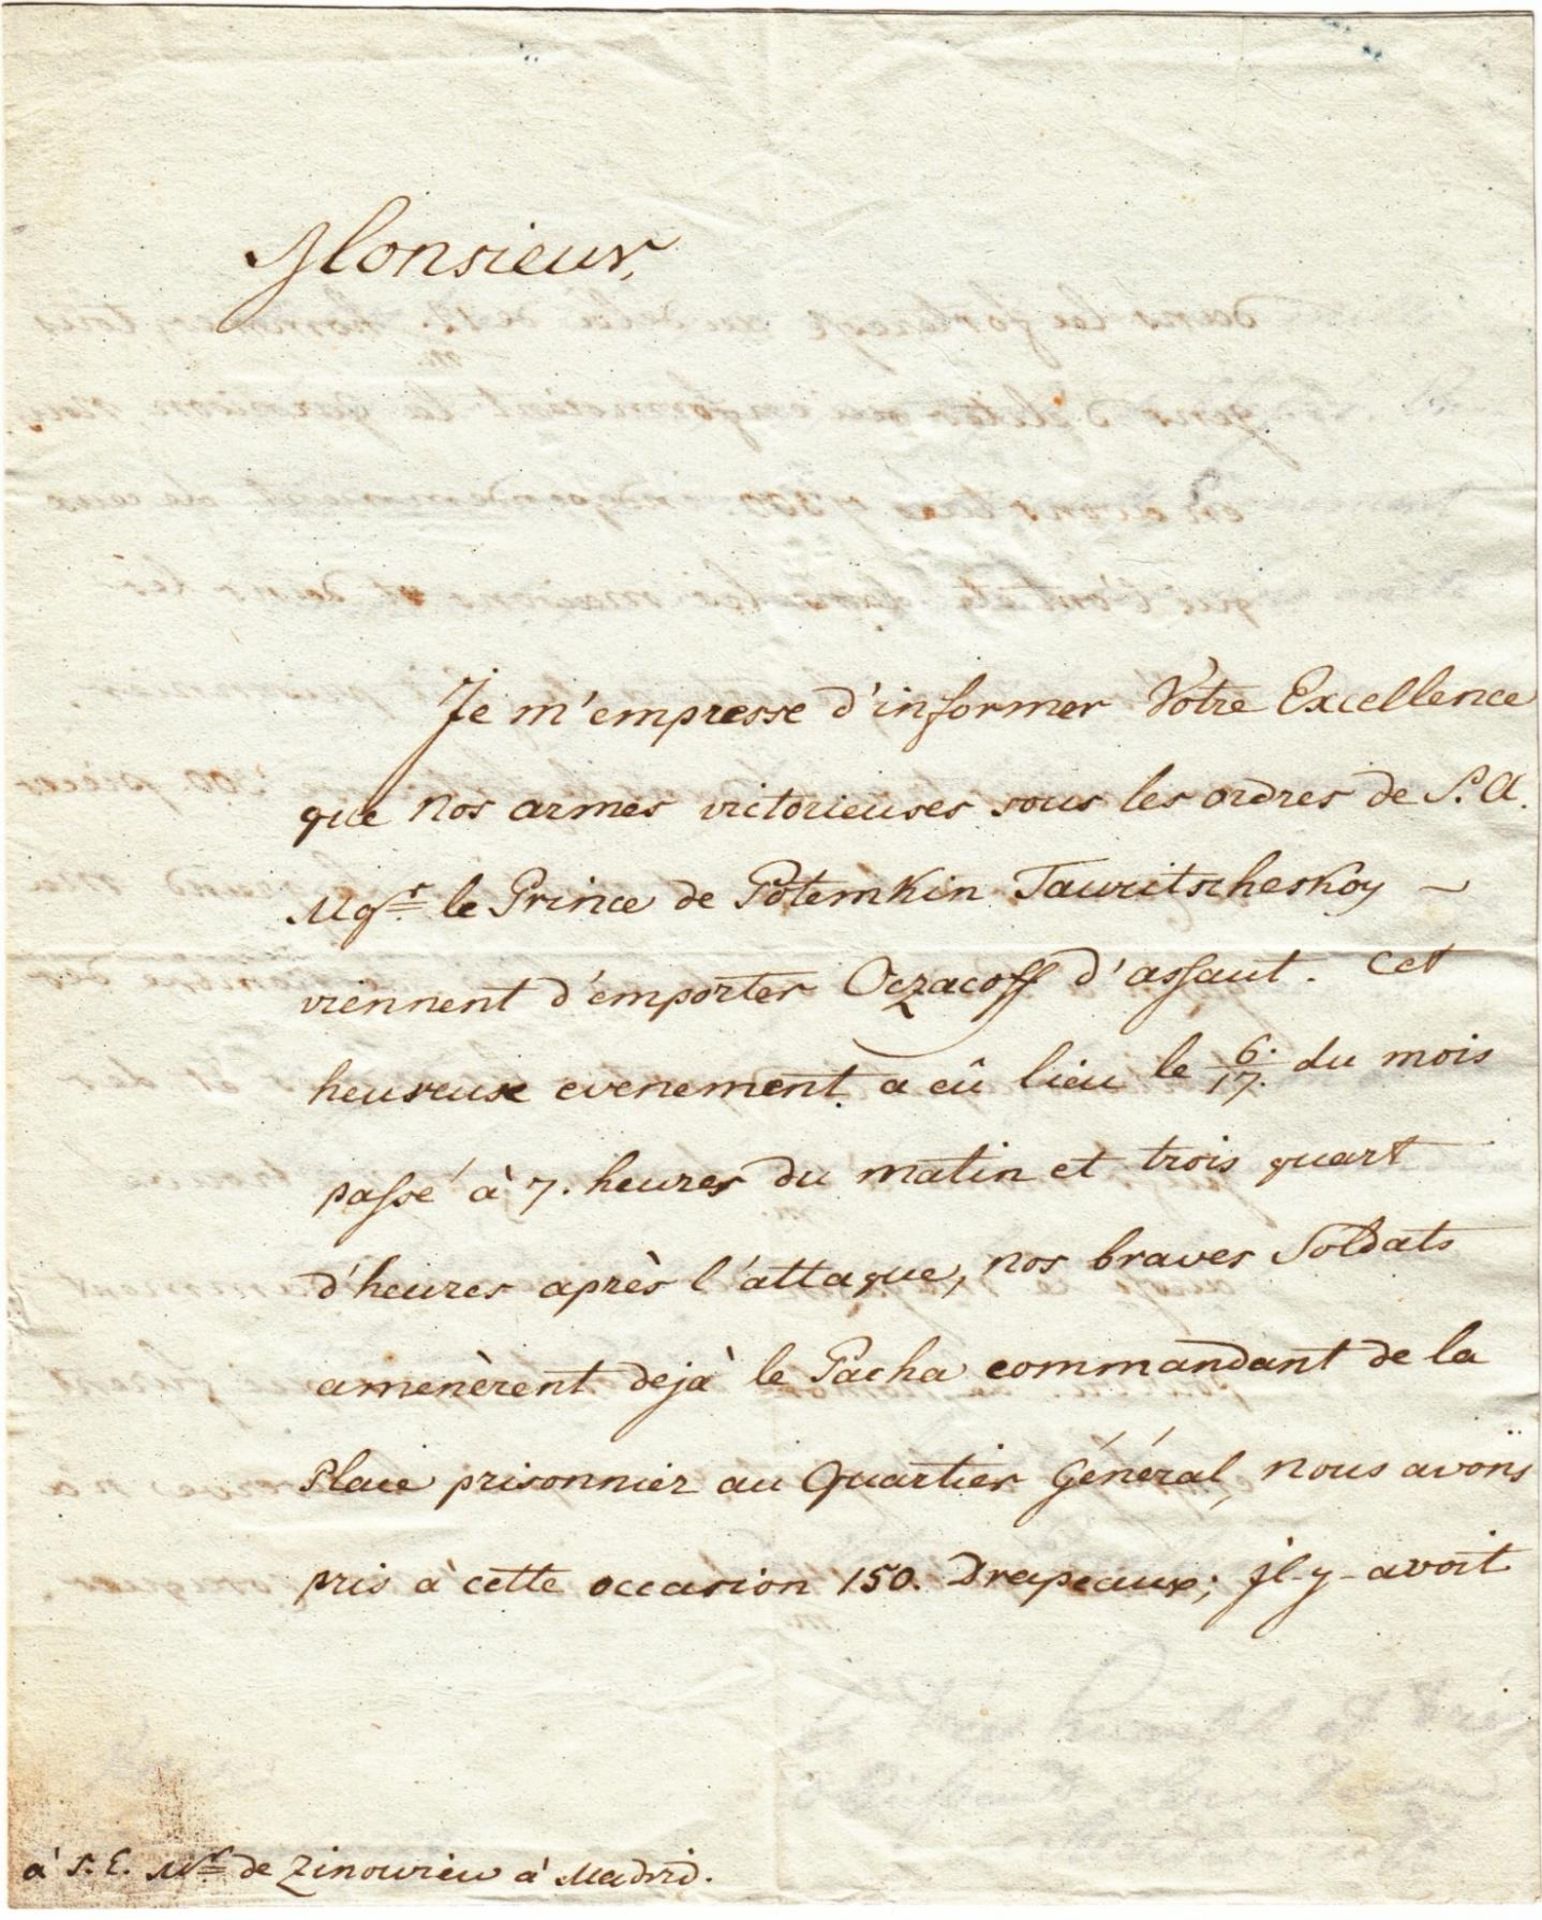 Monsieur,
Je m'empresse d'informer Votre Excellence
que nos armes victorieuses sous les ordres de S. A.
Mgr. le Prince de Potemkin Tauritscheskoy ~
viennent d'emporter Oczacoff d'assaut. Cet
heureuse evenement a eû lieu le 6./17. du mois
passé à 7. heures du matin et trois quart
d'heures après l'attaque, nos braves Soldats
amenèrent dejà le Pacha commandant de la
Place prisonnier au Quartier Général, nous avons
pris à cette occasion 150. Drapeaux; jl-y-avoit
à S. E. Mr. de Zinowiew à Madrid.